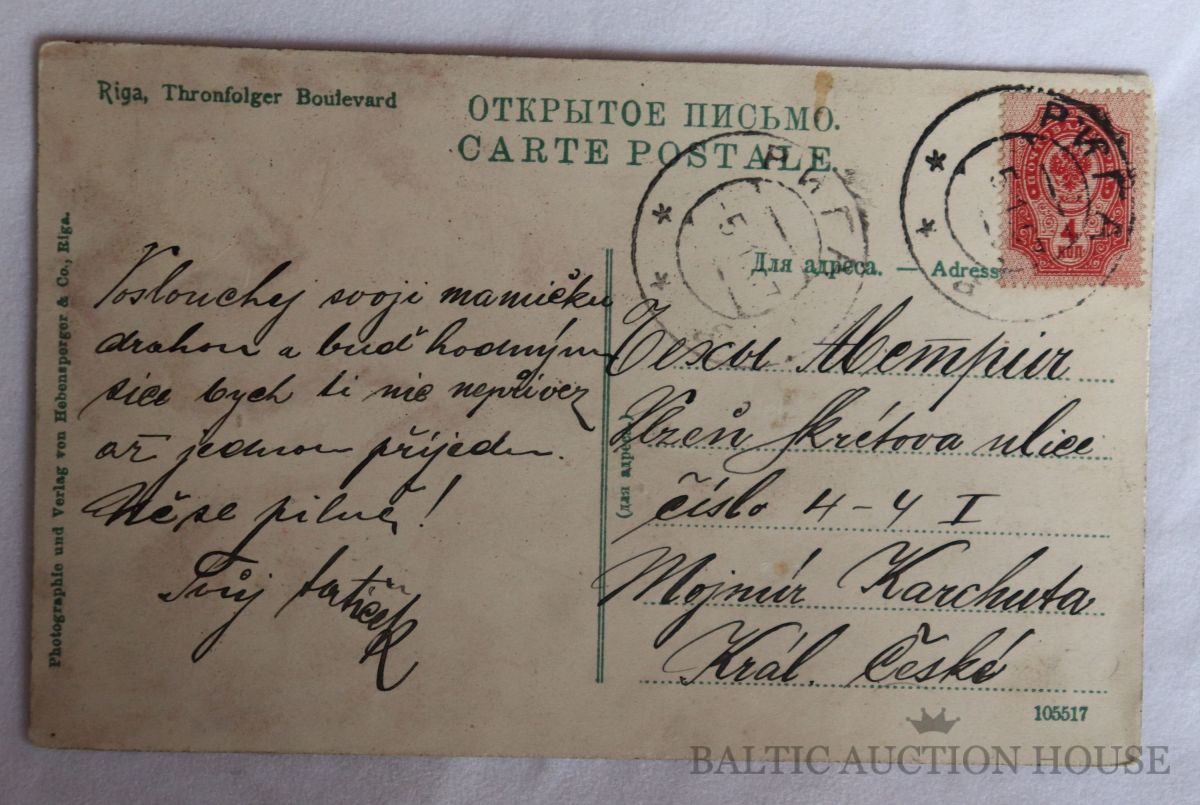 Riga, Thronfolger Boulevard
ОТКРЫТОЕ ПИСЬМО.
CARTE POSTALE.
Photographie und Verlag von Hebensperger & Co., Riga.
РИГА
РИГА
4
КОП
Для адреса. — Adress
(для адреса.)
Poslouchej svoji mamičku
drahou a buď hodným
sice bych ti nic nepřivez
až jednou přijedu.
Uč se pilně!
Tvůj tatíček
Чехы
Plzeň Skrétova ulice
číslo 4-4 I
Mojmír Karchuta
Král. České
105517
BALTIC AUCTION HOUSE